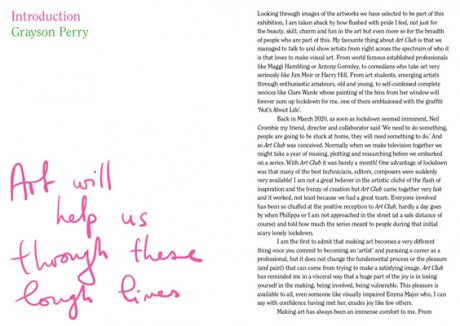 Introduction
Grayson Perry
Art will
help us
through these
tough times
Looking through images of the artworks we have selected to be part of this
exhibition, I am taken aback by how flushed with pride I feel, not just for
the beauty, skill, charm and fun in the art but even more so for the breadth
of people who are part of this. My favourite thing about Art Club is that we
managed to talk to and show artists from right across the spectrum of who it
is that loves to make visual art. From world famous established professionals
like Maggi Hambling or Antony Gormley, to comedians who take art very
seriously like Jim Moir or Harry Hill. From art students, emerging artists
through enthusiastic amateurs, old and young, to self-confessed complete
novices like Clare Warde whose painting of the bins from her window will
forever sum up lockdown for me, one of them emblazoned with the graffiti
‘Nut’s About Life’.
Back in March 2020, as soon as lockdown seemed imminent, Neil
Crombie my friend, director and collaborator said ‘We need to do something,
people are going to be stuck at home, they will need something to do.’ And
so Art Club was conceived. Normally when we make television together we
might take a year of musing, plotting and researching before we embarked
on a series. With Art Club it was barely a month! One advantage of lockdown
was that many of the best technicians, editors, composers were suddenly
very available! I am not a great believer in the artistic cliché of the flash of
inspiration and the frenzy of creation but Art Club came together very fast
and it worked, not least because we had a great team. Everyone involved
has been so chuffed at the positive reception to Art Club, hardly a day goes
by when Philippa or I am not approached in the street (at a safe distance of
course) and told how much the series meant to people during that initial
scary lonely lockdown.
I am the first to admit that making art becomes a very different
thing once you commit to becoming an ‘artist’ and pursuing a career as a
professional, but it does not change the fundamental process or the pleasure
(and pain!) that can come from trying to make a satisfying image. Art Club
has reminded me in a visceral way that a huge part of the joy is in losing
yourself in the making, being involved, being vulnerable. This pleasure is
available to all, even someone like visually impaired Emma Major who, I can
say with confidence having met her, exudes joy like few others.
Making art has always been an immense comfort to me. From